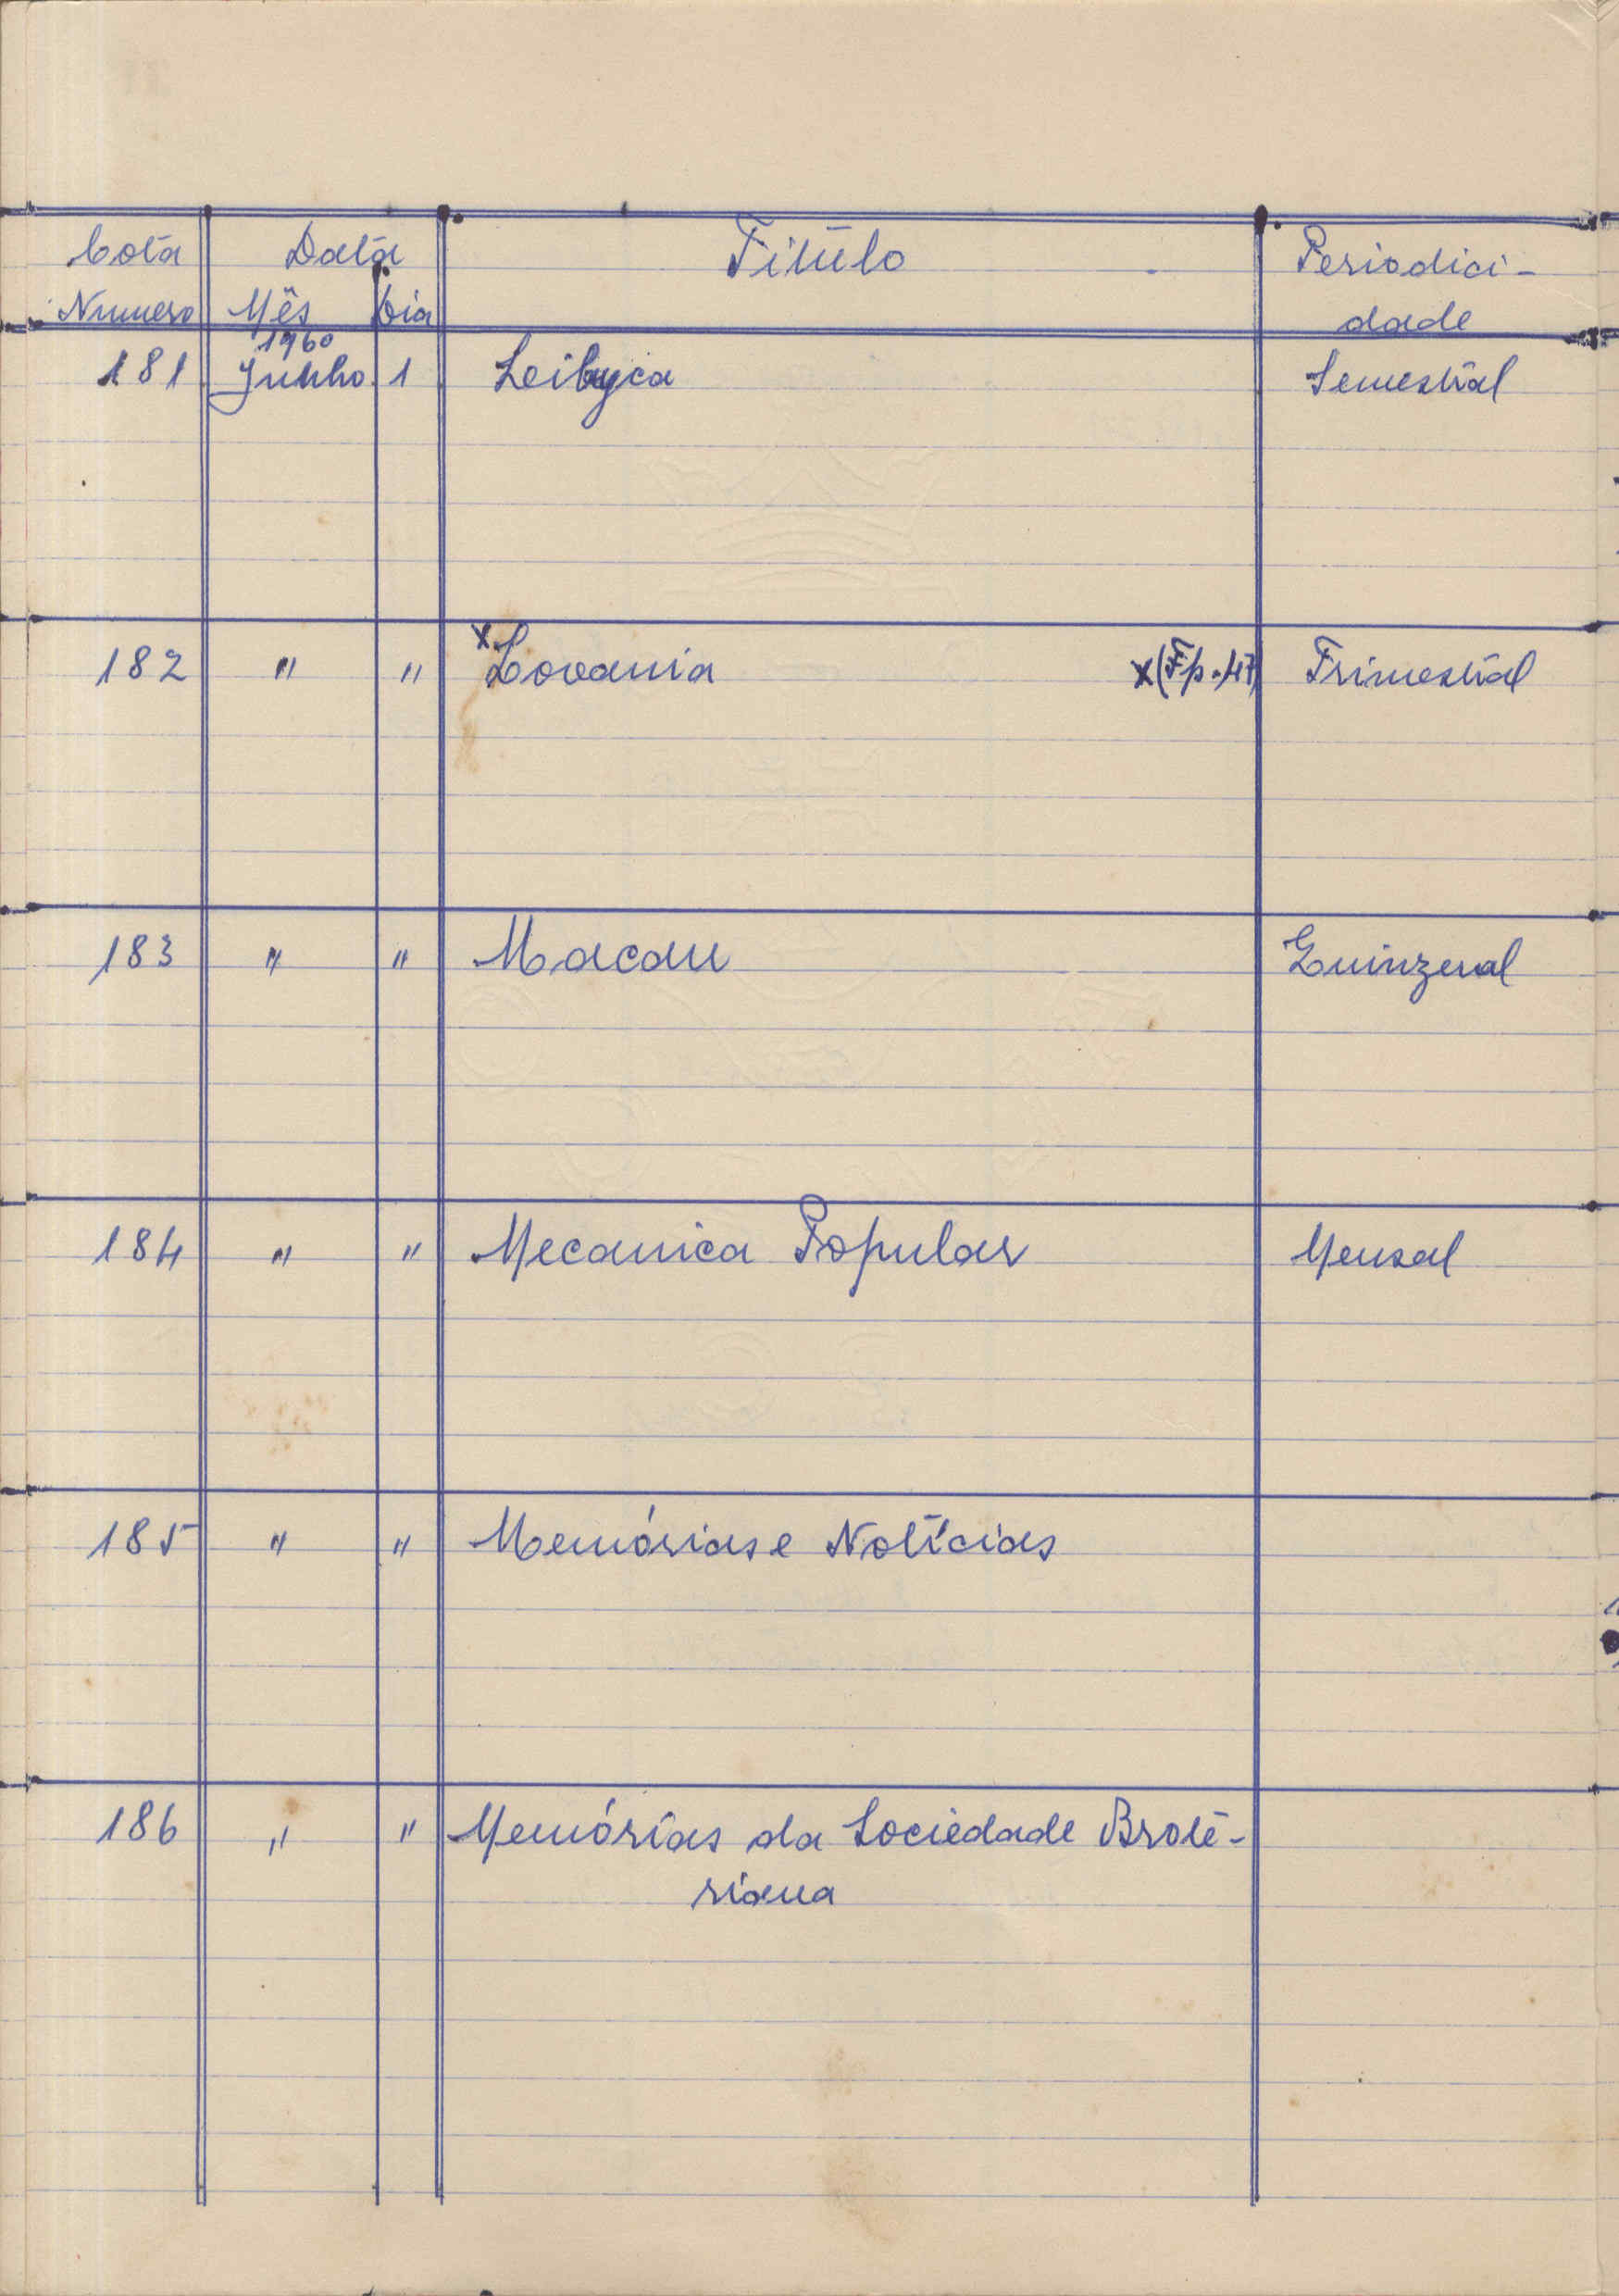 Cota Data Titulo Periodici-
Numero Mês Dia dade
1960
181 Junho 1 Leibyca Semestral
182 " " x Lovania x (Fp. 47) Trimestral
183 " " Macau Quinzenal
184 " " Mecanica Popular Mensal
185 " " Memórias e Notícias
186 " " Memórias da Sociedade Broté-
riana